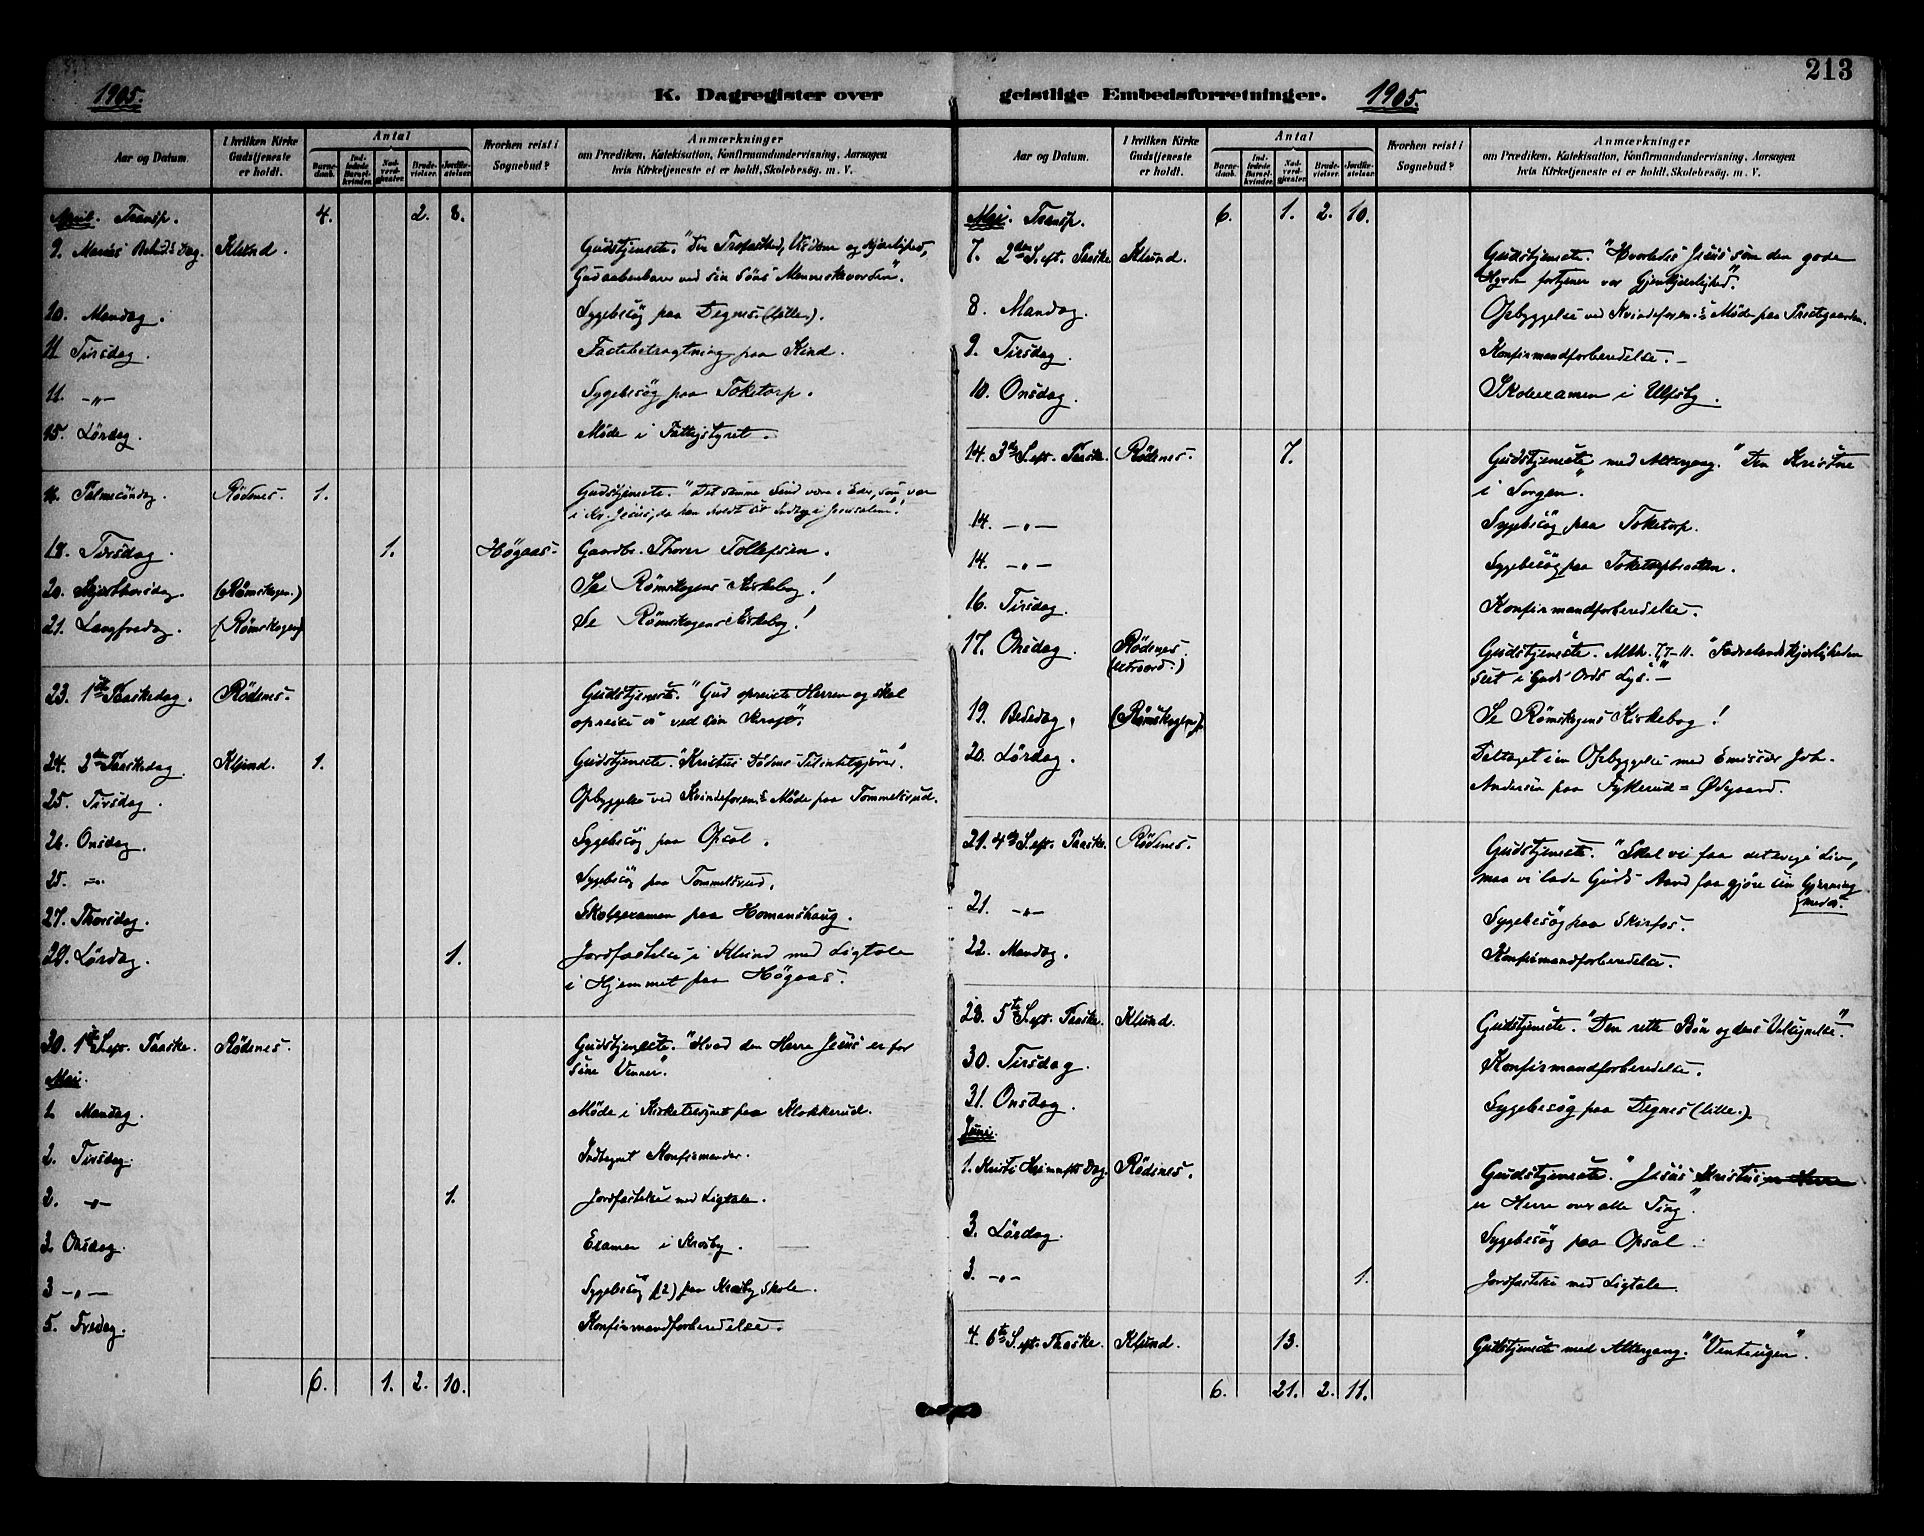 213
1905.
K. Dagregister over
Aar og Datum.
I hvilken Kirke Gudstjeneste er holdt.
Antal
Barne-daab.
Ind-ledede Barsel-kvinder.
Nad-verd-gjester.
Brude-vielser.
Jordfæ-stelser.
Hvorhen reist i Sognebud?
Anmærkninger
om Prædiken, Katekisation, Konfirmandundervisning, Aarsagen
hvis Kirketjeneste ei er holdt, Skolebesøg. m. V.
April. Transp. 4. 2. 8.
9. Mariæ Bebud.s Dag. Klund. Gudstjeneste. "Den Trofasthed, Visdom og Kjærlighed,
Gud aabenbarer ved sin Søns Menneskevorden".
10. Mandag. Sygebesøg paa Degnes (lille).
11 Tirsdag. Fastebetragtning paa Kind.
11. -"- Sygebesøg paa Toketorp.
15. Lørdag. Møde i Fattigstyret.
16. Palmesøndag. Rødenes. 1. Gudstjeneste. "Det samme Sind være i Eder, som var
i Kr. Jesus, da han holdt sit Indtog i Jerusalem".
18. Tirsdag. 1. Høgaas. Gaardbr. Thorer Tollefsen.
20. Skjærthorsdag. (Rømskogen.) Se Rømskogens Kirkebog!
21. Langfredag. (Rømskogen) Se Rømskogens Kirkebog!
23. 1ste Paaskedag. Rødenes. Gudstjeneste. "Gud opreiste Herren og skal
opreise os ved sin Kraft".
24. 2den Paaskedag. Klund. 1. Gudstjeneste. "Kristus Dødens Tilintetgjører."
25. Tirsdag. Opbyggelse ved Kvindeforen.s Møde paa Tommelsrud.
26. Onsdag. Sygebesøg paa Opsal.
25. -"- Sygebesøg paa Tommelsrud.
27. Thorsdag. Skoleexamen paa Homanshaug.
29. Lørdag. 1. Jordfæstelse i Klund med Ligtale
i Hjemmet paa Høgaas.
30. 1ste S. eft. Paaske. Rødenes. Gudstjeneste. "Hvad den Herre Jesus er for
sine Venner".
Mai.
1. Mandag. Møde i Kirketilsynet paa Klokkerud.
2. Tirsdag. Indtegnet Konfirmander.
2. -"- 1. Jordfæstelse med Ligtale.
3. Onsdag. Examen i Krosby.
3 -"- Sygebesøg (2) paa Krosby Skole.
5. Fredag. Konfirmandforberedelse.
6. 1. 2. 10.
geistlige Embedsforretninger. 1905.
Aar og Datum.
I hvilken Kirke Gudstjeneste er holdt.
Antal
Barne-daab.
Ind-ledede Barsel-kvinder.
Nad-verd-gjester.
Brude-vielser.
Jordfæ-stelser.
Hvorhen reist i Sognebud?
Anmærkninger
om Prædiken, Katekisation, Konfirmandundervisning, Aarsagen
hvis Kirketjeneste ei er holdt, Skolebesøg. m. V.
Mai. Transp. 6. 1. 2. 10.
7. 2den S. eft. Paaske Klund. Gudstjeneste. "Hvorledes Jesus som den gode
Hyrde fortjener vor Gjenkjærlighed".
8. Mandag. Opbyggelse ved Kvindeforen.s Møde paa Prestgaarden.
9. Tirsdag. Konfirmandforberedelse.
10. Onsdag. Skoleexamen i Ulfsby.
14. 3die S. eft. Paaske. Rødenes. 7. Gudstjeneste med Altergang. "Den Kristne
i Sorgen".
14. -"- Sygebesøg paa Toketorp.
14. -"- Sygebesøg paa Toketorpbraaten.
16. Tirsdag. Konfirmandforberedelse.
17. Onsdag. Rødenes. Gudstjeneste. Mth. 7,7-11. "Fædrelandskjærligheden
set i Guds Ords Lys."
19. Bededag. (Rømskogen). Se Rømskogens Kirkebog!
20. Lørdag. Deltaget i en Opbyggelse med Emissær Joh.
Andersen paa Tykerud = Ødegaard.
21. 4de S. eft. Paaske. Rødenes. Gudstjeneste. "Skal vi faa det evige Liv,
maa vi lade Guds Aand faa gjøre sin Gjerning
med os."
21. -"- Sygebesøg paa Skirfos.
22. Mandag. Konfirmandforberedelse.
28. 5te S. eft. Paaske. Klund. Gudstjeneste. "Den rette Bøn og dens Velsignelse."
30. Tirsdag. Konfirmandforberedelse.
31. Onsdag. Sygebesøg paa Degnes (lille).
Juni.
1. Kristi Himmelfts Dag. Rødenes. Gudstjeneste. "Jesus Kristus er Herre
er Herre over alle Ting".
3. Lørdag. Sygebesøg paa Opsal.
3. -"- 1. Jordfæstelse med Ligtale.
4. 6te S. eft. Paaske. Klund. 13. Gudstjeneste med Altergang. "Venteugen".
6. 21. 2. 11.